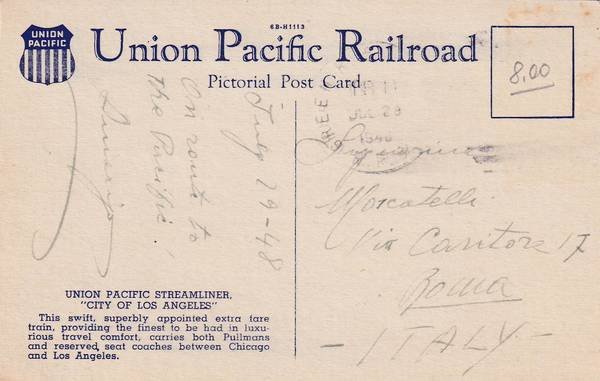 6B-H1113
UNION
PACIFIC
Union Pacific Railroad
Pictorial Post Card
8,00
JUL 29
July 29-48
On route to
the Pacific!
Moscatelli
Via Caritora 17
Roma
- ITALY -
UNION PACIFIC STREAMLINER,
"CITY OF LOS ANGELES"
This swift, superbly appointed extra fare
train, providing the finest to be had in luxu-
rious travel comfort, carries both Pullmans
and reserved seat coaches between Chicago
and Los Angeles.